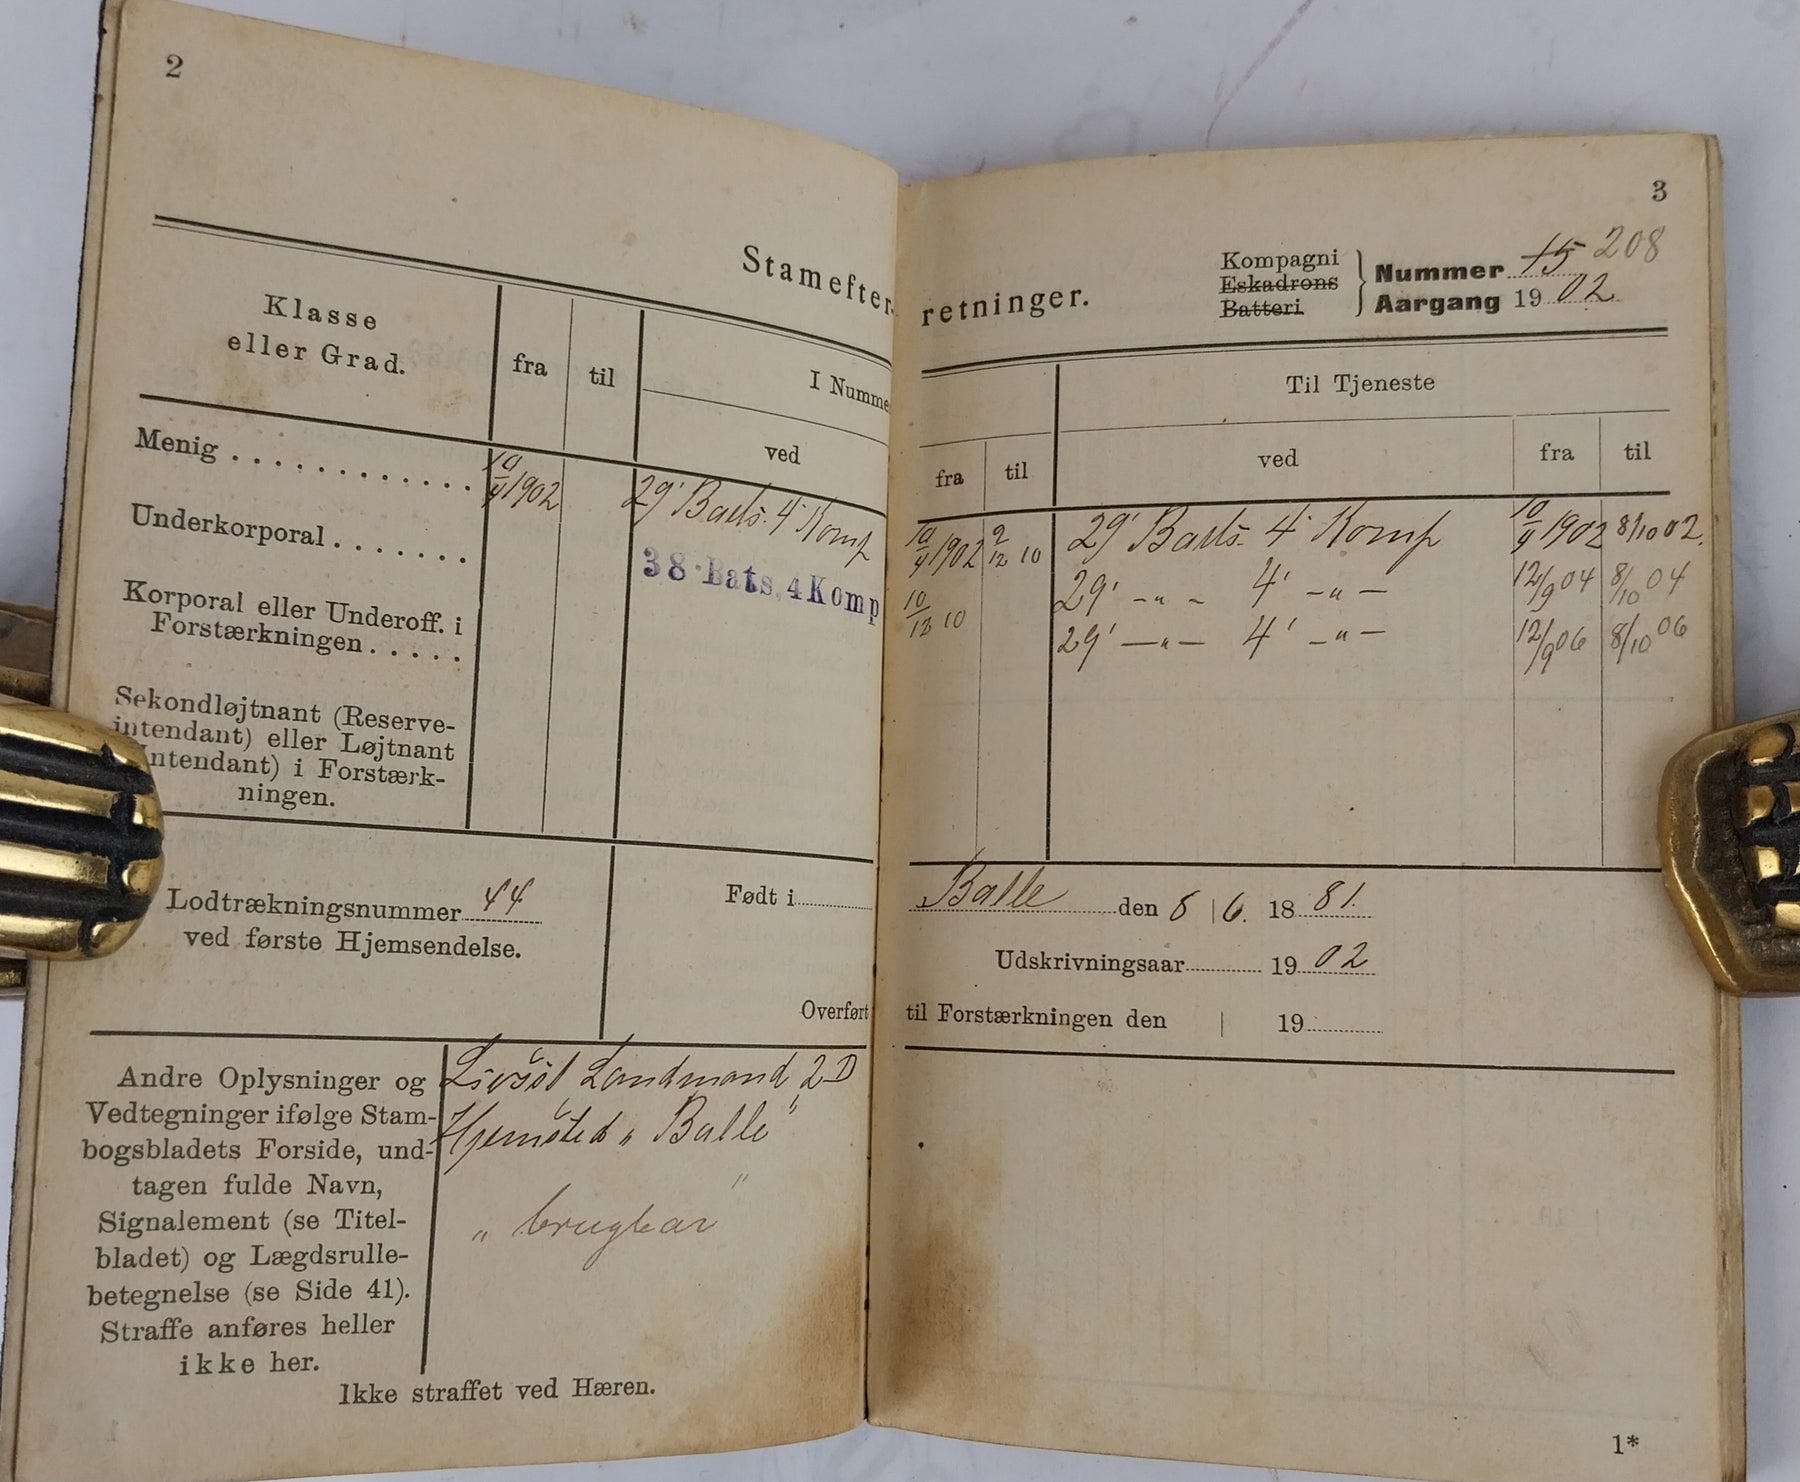 2
Stamefter-
Klasse
eller Grad.
fra
til
I Numme
ved
Menig
10/4 1902
29' Bats. 4' Komp
Underkorporal
38. Bats. 4 Komp
Korporal eller Underoff. i
Forstærkningen
Sekondløjtnant (Reserve-
intendant) eller Løjtnant
Intendant) i Forstærk-
ningen.
Lodtrækningsnummer 44
ved første Hjemsendelse.
Født i
Overført
Andre Oplysninger og
Vedtegninger ifølge Stam-
bogsbladets Forside, und-
tagen fulde Navn,
Signalement (se Titel-
bladet) og Lægdsrulle-
betegnelse (se Side 41).
Straffe anføres heller
ikke her.
Landmand 2 D
Hjemsted " Balle "
" brugbar "
Ikke straffet ved Hæren.
3
Kompagni
Eskadrons
Batteri
Nummer 15 208
Aargang 1902
retninger.
Til Tjeneste
fra
til
ved
fra
til
10/4 1902 2/12 10 29' Bats. 4' Komp 10/4 1902 8/10 02.
10/12 10 29' -"- 4' -"- 12/9 04 8/10 04
29' -"- 4' -"- 12/9 06 8/10 06
Balle den 6 | 6. 1881.
Udskrivningsaar 1902
til Forstærkningen den | 19
1*